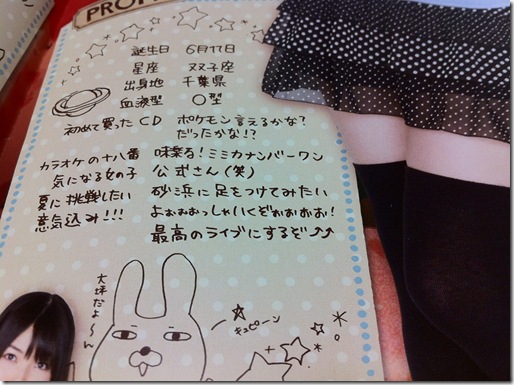 PROF
誕生日 6月17日
星座 双子座
出身地 千葉県
血液型 O型
初めて買ったCD ポケモン言えるかな?
だったかな!?
カラオケの十八番 味楽る!ミミカナンバーワン
気になる女の子 公式さん(笑)
夏に挑戦したい 砂浜に足をつけてみたい
意気込み!!! よぉぉぉっしゃいくぞぉぉぉぉ!
最高のライブにするぞ↑↑
大坪だよ〜ん
キュピーン